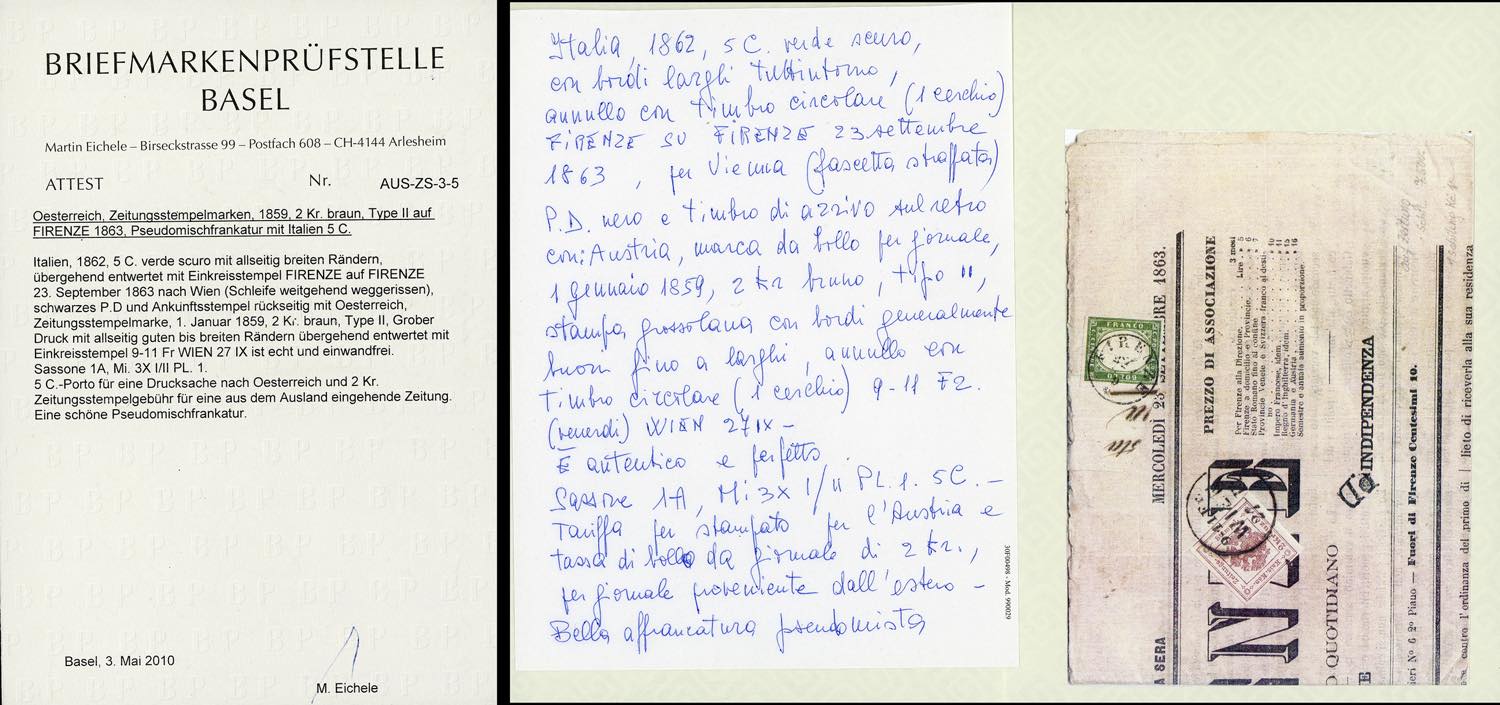 BRIEFMARKENPRÜFSTELLE
BASEL
Martin Eichele – Birseckstrasse 99 – Postfach 608 – CH-4144 Arlesheim
ATTEST Nr. AUS-ZS-3-5
Oesterreich, Zeitungsstempelmarken, 1859, 2 Kr. braun, Type II auf
FIRENZE 1863, Pseudomischfrankatur mit Italien 5 C.
Italien, 1862, 5 C. verde scuro mit allseitig breiten Rändern,
übergehend entwertet mit Einkreisstempel FIRENZE auf FIRENZE
23. September 1863 nach Wien (Schleife weitgehend weggerissen),
schwarzes P.D und Ankunftsstempel rückseitig mit Oesterreich,
Zeitungsstempelmarke, 1. Januar 1859, 2 Kr. braun, Type II, Grober
Druck mit allseitig guten bis breiten Rändern übergehend entwertet mit
Einkreisstempel 9-11 Fr WIEN 27 IX ist echt und einwandfrei.
Sassone 1A, Mi. 3X I/II PL. 1.
5 C.-Porto für eine Drucksache nach Oesterreich und 2 Kr.
Zeitungsstempelgebühr für eine aus dem Ausland eingehende Zeitung.
Eine schöne Pseudomischfrankatur.
Basel, 3. Mai 2010
M. Eichele
Italia, 1862, 5 C. verde scuro,
con bordi larghi tuttintorno,
annullo con timbro circolare (1 cerchio)
FIRENZE SU FIRENZE 23 settembre
1863, per Vienna (fascetta strappata)
P.D. nero e timbro di arrivo sul retro
con: Austria, marca da bollo per giornale,
1 gennaio 1859, 2 kr bruno, tipo II,
stampa grossolana con bordi generalmente
buoni fino a larghi, annullo con
timbro circolare (1 cerchio) 9-11 Fr.
(venerdi) WIEN 27 IX –
È autentico e perfetto
Sassone 1A, Mi 3X I/II PL. 1. 5 C. –
Tariffa per stampato per l'Austria e
tassa di bollo da giornale di 2 kr.,
per giornale proveniente dall'estero –
Bella affrancatura pseudomista
30F00498 - Mod. 990029
MERCOLEDÌ 23 SETTEMBRE 1863.
A SERA
FRANCO
FIRENZE
PREZZO DI ASSOCIAZIONE
3 mesi
Per Firenze alla Direzione. Lire 5
Firenze a domicilio e Provincie. 6
Stato Romano fino al confine
Provincie Venete e Svizzera franco al desti-
no
Impero Francese, idem
Regno d'Inghilterra, idem
Germania e Austria
Semestre e annata aumento in proporzione.
WIEN
NZ
O QUOTIDIANO
PD
INDIPENDENZA
ieri N° 6 2° Piano — Fuori di Firenze Centesimi 10.
contro l'ordinanza del primo di
lieto di riceverla alla sua residenza